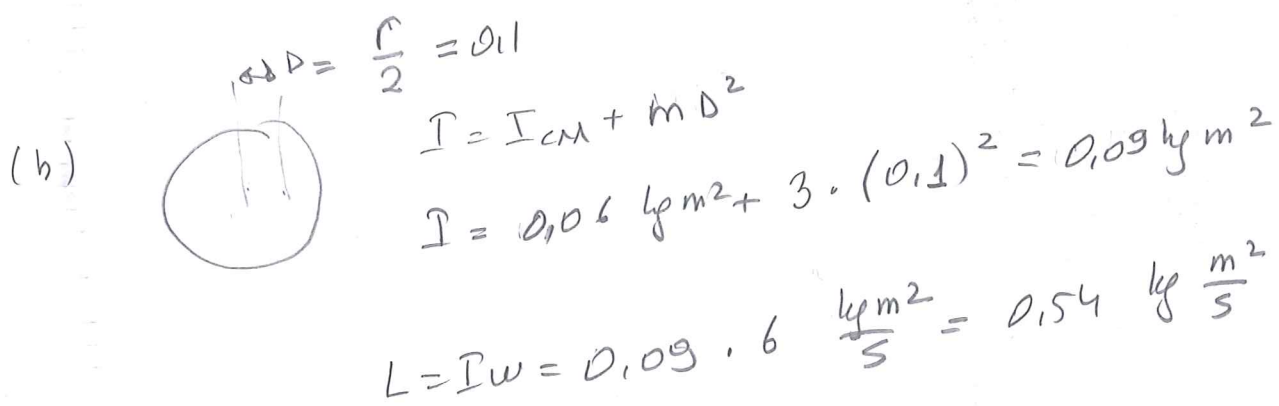 D = r/2 = 0,1
I = I_CM + m D²
(b)
I = 0,06 kg m² + 3 · (0,1)² = 0,09 kg m²
L = Iw = 0,09 · 6 kg m²/s = 0,54 kg m²/s